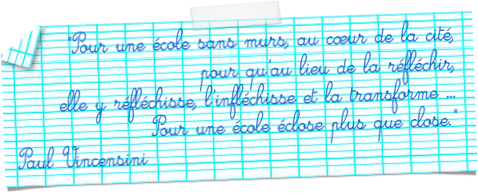 "Pour une école sans murs, au cœur de la cité,
pour qu'au lieu de la réfléchir,
elle y réfléchisse, l'infléchisse et la transforme ...
Pour une école éclose plus que close."
Paul Vincensini